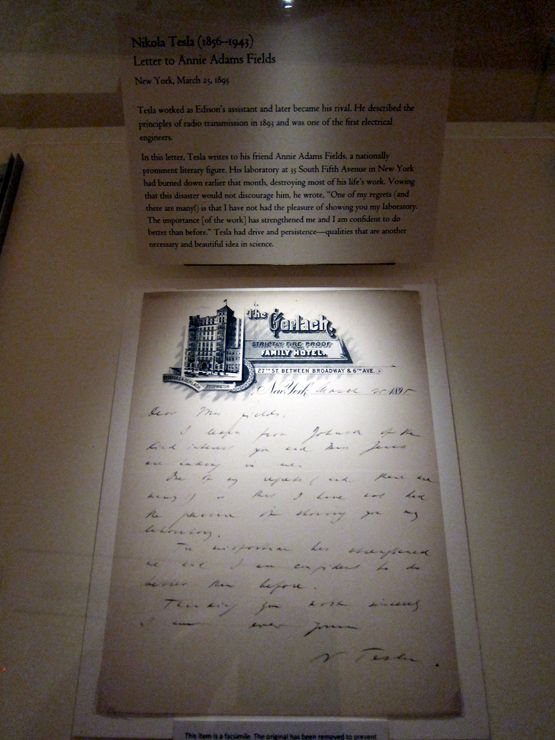 Nikola Tesla (1856–1943)
Letter to Annie Adams Fields
New York, March 25, 1895
Tesla worked as Edison's assistant and later became his rival. He described the
principles of radio transmission in 1893 and was one of the first electrical
engineers.
In this letter, Tesla writes to his friend Annie Adams Fields, a nationally
prominent literary figure. His laboratory at 35 South Fifth Avenue in New York
had burned down earlier that month, destroying most of his life's work. Vowing
that this disaster would not discourage him, he wrote, "One of my regrets (and
there are many!) is that I have not had the pleasure of showing you my laboratory.
The importance [of the work] has strengthened me and I am confident to do
better than before." Tesla had drive and persistence—qualities that are another
necessary and beautiful idea in science.
The Gerlach,
STRICTLY FIRE PROOF
FAMILY HOTEL.
27TH ST. BETWEEN BROADWAY & 6TH AVE.
PROPRIETOR
New York March 25 1895
Dear Mrs Fields,
I learn from Johnson of the
kind interest you and Miss
are in me.
One of my regrets (and there are
many!) is that I have not had
the pleasure of showing you my
laboratory.
The has strengthened
me and I am confident to do
better than before.
Thanking you most sincerely
I am ever yours
N Tesla.
This item is a facsimile. The original has been removed to prevent